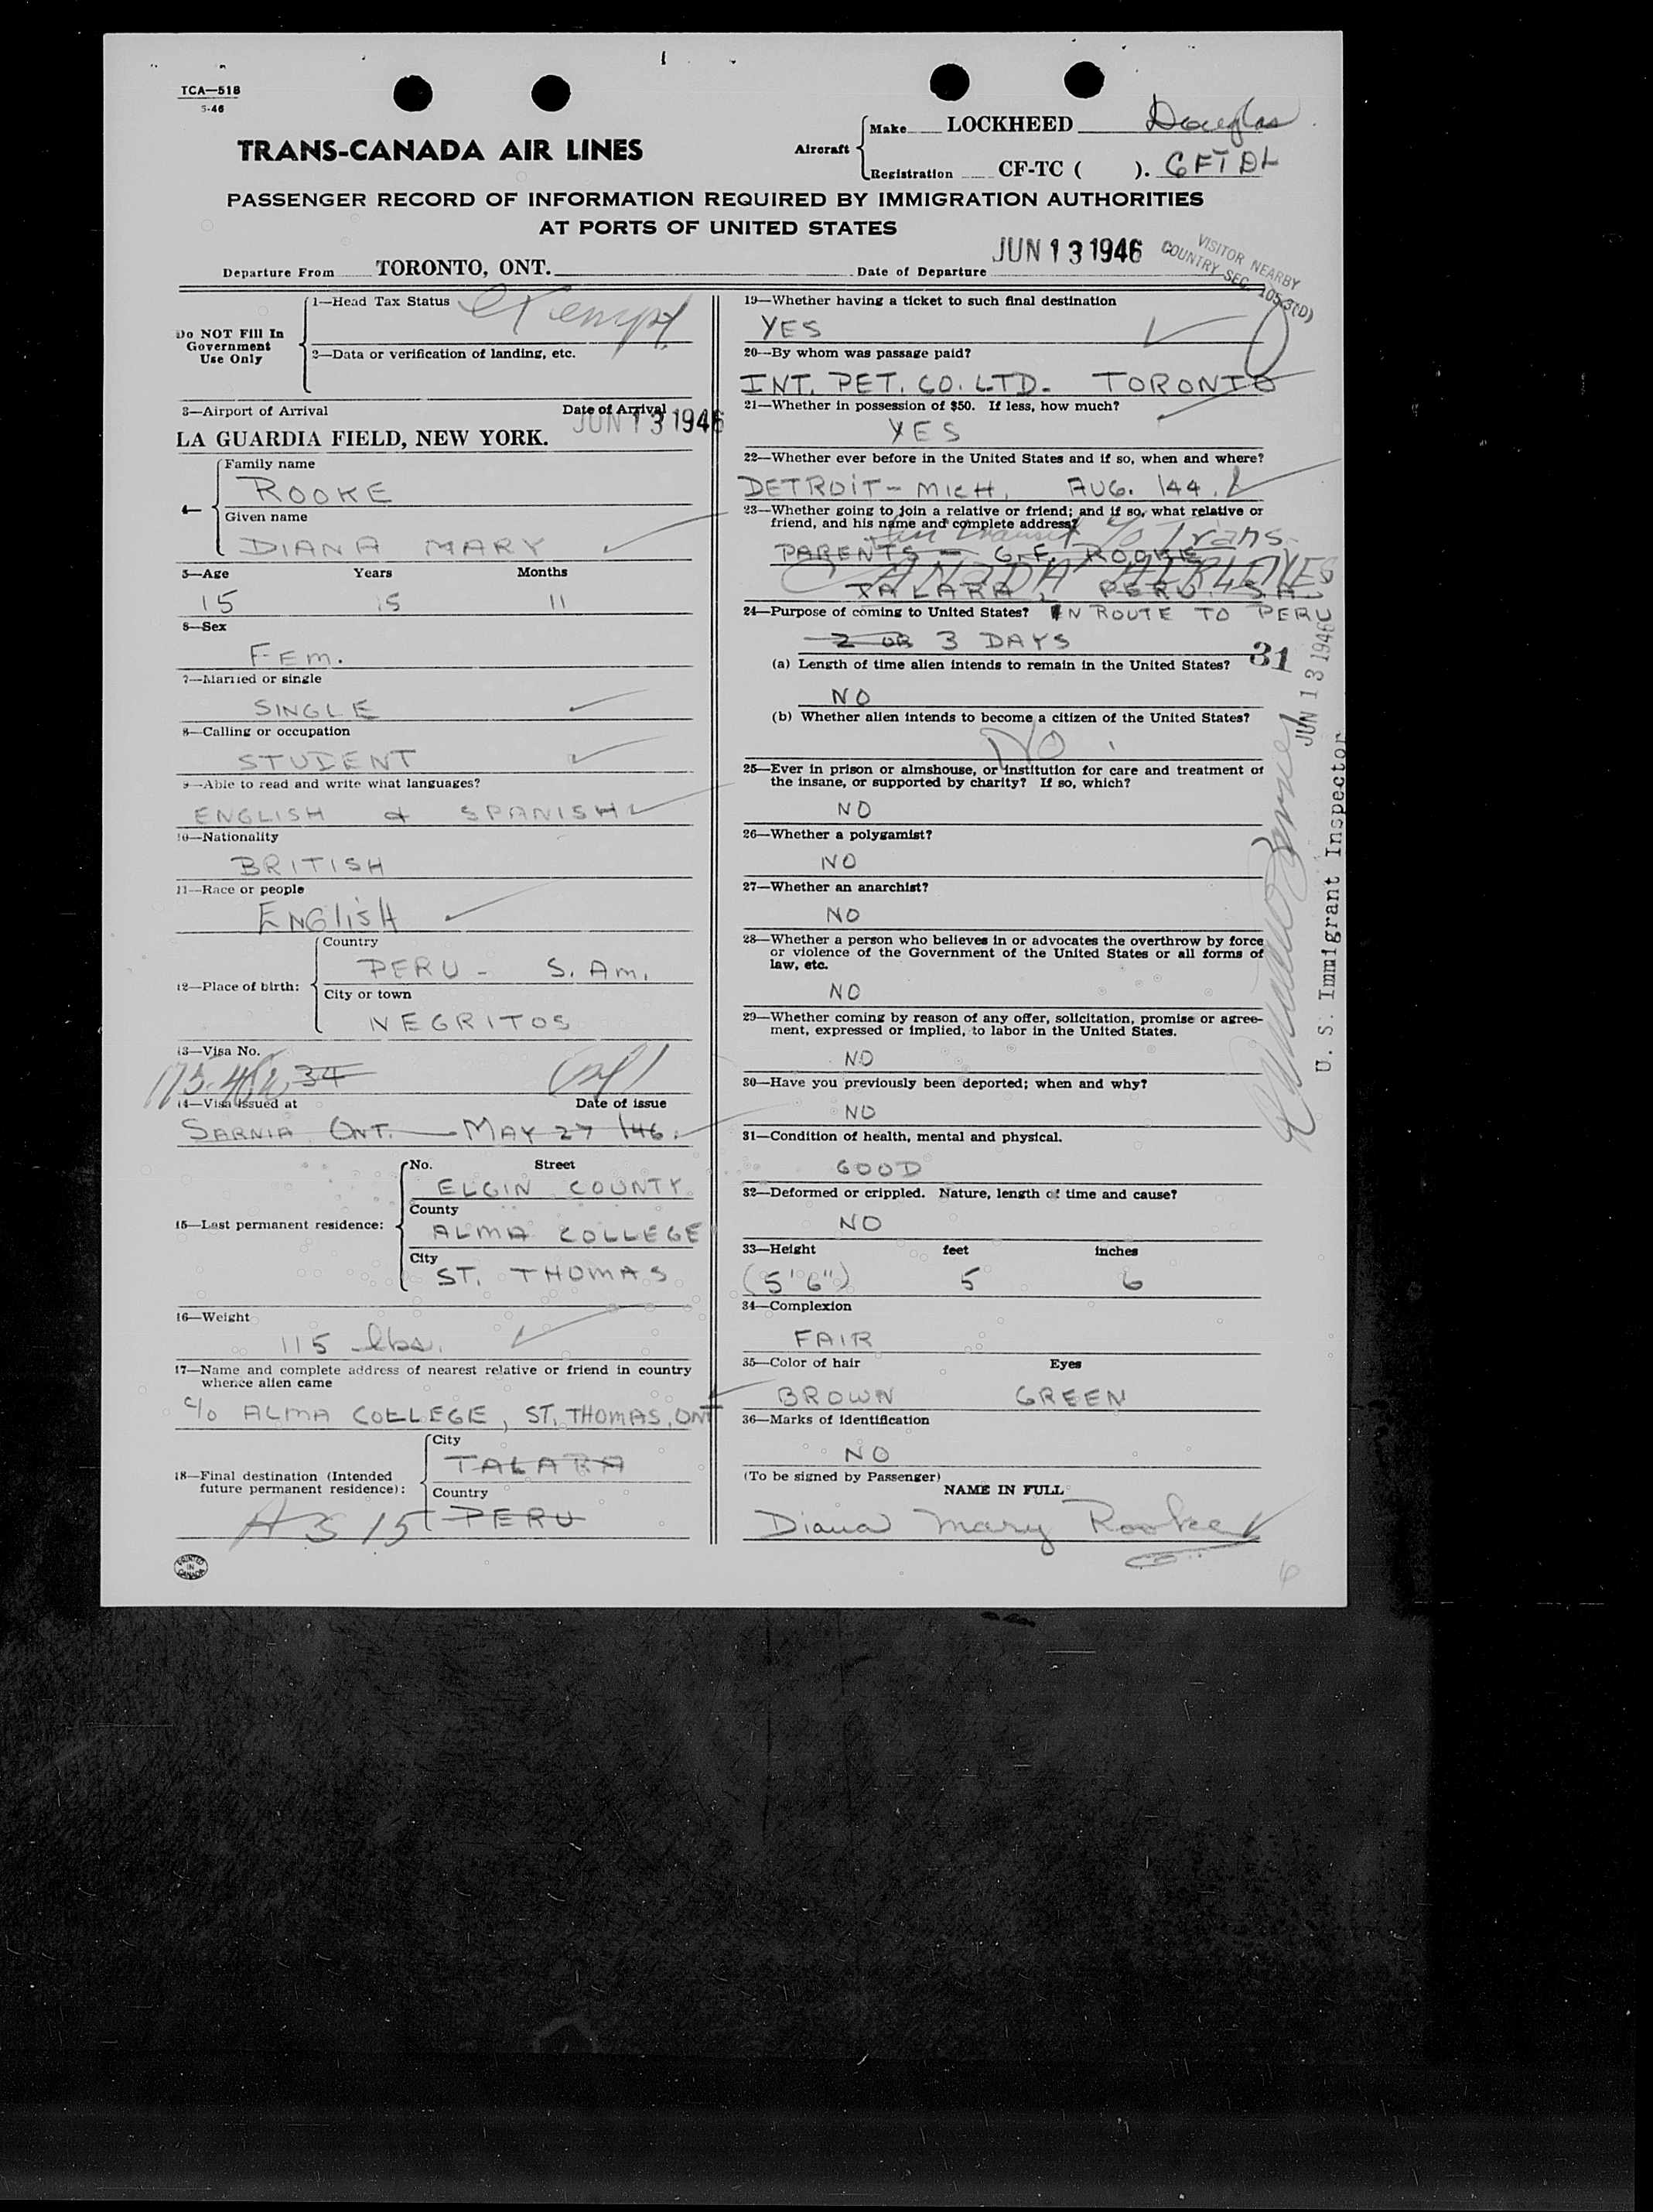 TCA—518
5-46
TRANS-CANADA AIR LINES
Aircraft
Make LOCKHEED Douglas
Registration CF-TC ( ). CFTDL
PASSENGER RECORD OF INFORMATION REQUIRED BY IMMIGRATION AUTHORITIES
AT PORTS OF UNITED STATES
Departure From TORONTO, ONT. Date of Departure JUN 13 1946
VISITOR NEARBY
COUNTRY SEC. 105.3(D)
Do NOT Fill In
Government
Use Only
1—Head Tax Status Exempt
2—Data or verification of landing, etc.
3—Airport of Arrival Date of Arrival
LA GUARDIA FIELD, NEW YORK. JUN 13 1946
4—
Family name
ROOKE
Given name
DIANA MARY
5—Age Years Months
15 15 11
6—Sex
FEM.
7—Married or single
SINGLE
8—Calling or occupation
STUDENT
9—Able to read and write what languages?
ENGLISH & SPANISH
10—Nationality
BRITISH
11—Race or people
ENGLISH
12—Place of birth:
Country
PERU - S. AM.
City or town
NEGRITOS
13—Visa No.
34
14—Visa issued at Date of issue
SARNIA ONT. — MAY 27 /46.
15—Last permanent residence:
No. Street
ELGIN COUNTY
County
ALMA COLLEGE
City
ST. THOMAS
16—Weight
115 lbs.
17—Name and complete address of nearest relative or friend in country
whence alien came
c/o ALMA COLLEGE, ST. THOMAS, ONT
18—Final destination (Intended
future permanent residence):
City
TALARA
Country
PERU
A 3 15
PRINTED
IN
CANADA
19—Whether having a ticket to such final destination
YES
20—By whom was passage paid?
INT. PET. CO. LTD. TORONTO
21—Whether in possession of $50. If less, how much?
YES
22—Whether ever before in the United States and if so, when and where?
DETROIT - MICH. AUG. /44.
23—Whether going to join a relative or friend; and if so, what relative or
friend, and his name and complete address?
In transit c/o Trans
PARENTS — G. F. ROOKE
CANADA AIRLINES
TALARA, PERU. S.A.
24—Purpose of coming to United States? IN ROUTE TO PERU
2 OR 3 DAYS
(a) Length of time alien intends to remain in the United States?
NO
(b) Whether alien intends to become a citizen of the United States?
No
25—Ever in prison or almshouse, or institution for care and treatment of
the insane, or supported by charity? If so, which?
NO
26—Whether a polygamist?
NO
27—Whether an anarchist?
NO
28—Whether a person who believes in or advocates the overthrow by force
or violence of the Government of the United States or all forms of
law, etc.
NO
29—Whether coming by reason of any offer, solicitation, promise or agree-
ment, expressed or implied, to labor in the United States.
NO
30—Have you previously been deported; when and why?
NO
31—Condition of health, mental and physical.
GOOD
32—Deformed or crippled. Nature, length of time and cause?
NO
33—Height feet inches
(5'6") 5 6
34—Complexion
FAIR
35—Color of hair Eyes
BROWN GREEN
36—Marks of identification
NO
(To be signed by Passenger)
NAME IN FULL
Diana Mary Rooke
31
JUN 13 1946
U. S. Immigrant Inspector
6